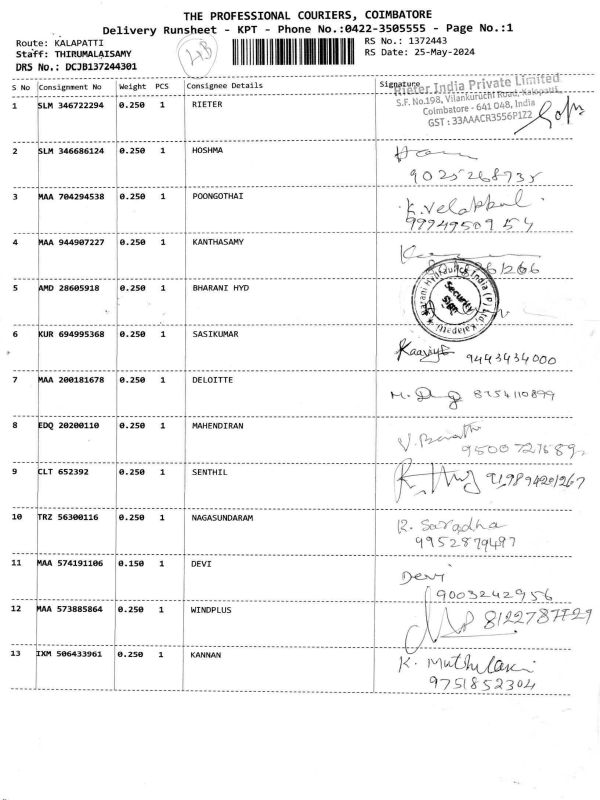 THE PROFESSIONAL COURIERS, COIMBATORE
Delivery Runsheet - KPT - Phone No.:0422-3505555 - Page No.:1
Route: KALAPATTI
Staff: THIRUMALAISAMY
DRS No.: DCJB137244301
RS No.: 1372443
RS Date: 25-May-2024
S No Consignment No Weight PCS Consignee Details Signature
1 SLM 346722294 0.250 1 RIETER
Rieter India Private Limited
S.F. No.198, Vilankuruchi Road, Kalapatti,
Coimbatore - 641 048, India
GST : 33AAACR3556P1Z2
2 SLM 346686124 0.250 1 HOSHMA
9025268735
3 MAA 704294538 0.250 1 POONGOTHAI
K. Velappal
9994950954
4 MAA 944907227 0.250 1 KANTHASAMY
5 AMD 28605918 0.250 1 BHARANI HYD
Security
6 KUR 694995368 0.250 1 SASIKUMAR
9443434000
7 MAA 200181678 0.250 1 DELOITTE
8754110899
8 EDQ 20200110 0.250 1 MAHENDIRAN
9 CLT 652392 0.250 1 SENTHIL
10 TRZ 56300116 0.250 1 NAGASUNDARAM
R. Saradha
9952879497
11 MAA 574191106 0.150 1 DEVI
Devi
9003242956
12 MAA 573885864 0.250 1 WINDPLUS
8122787729
13 IXM 506433961 0.250 1 KANNAN
9751852304